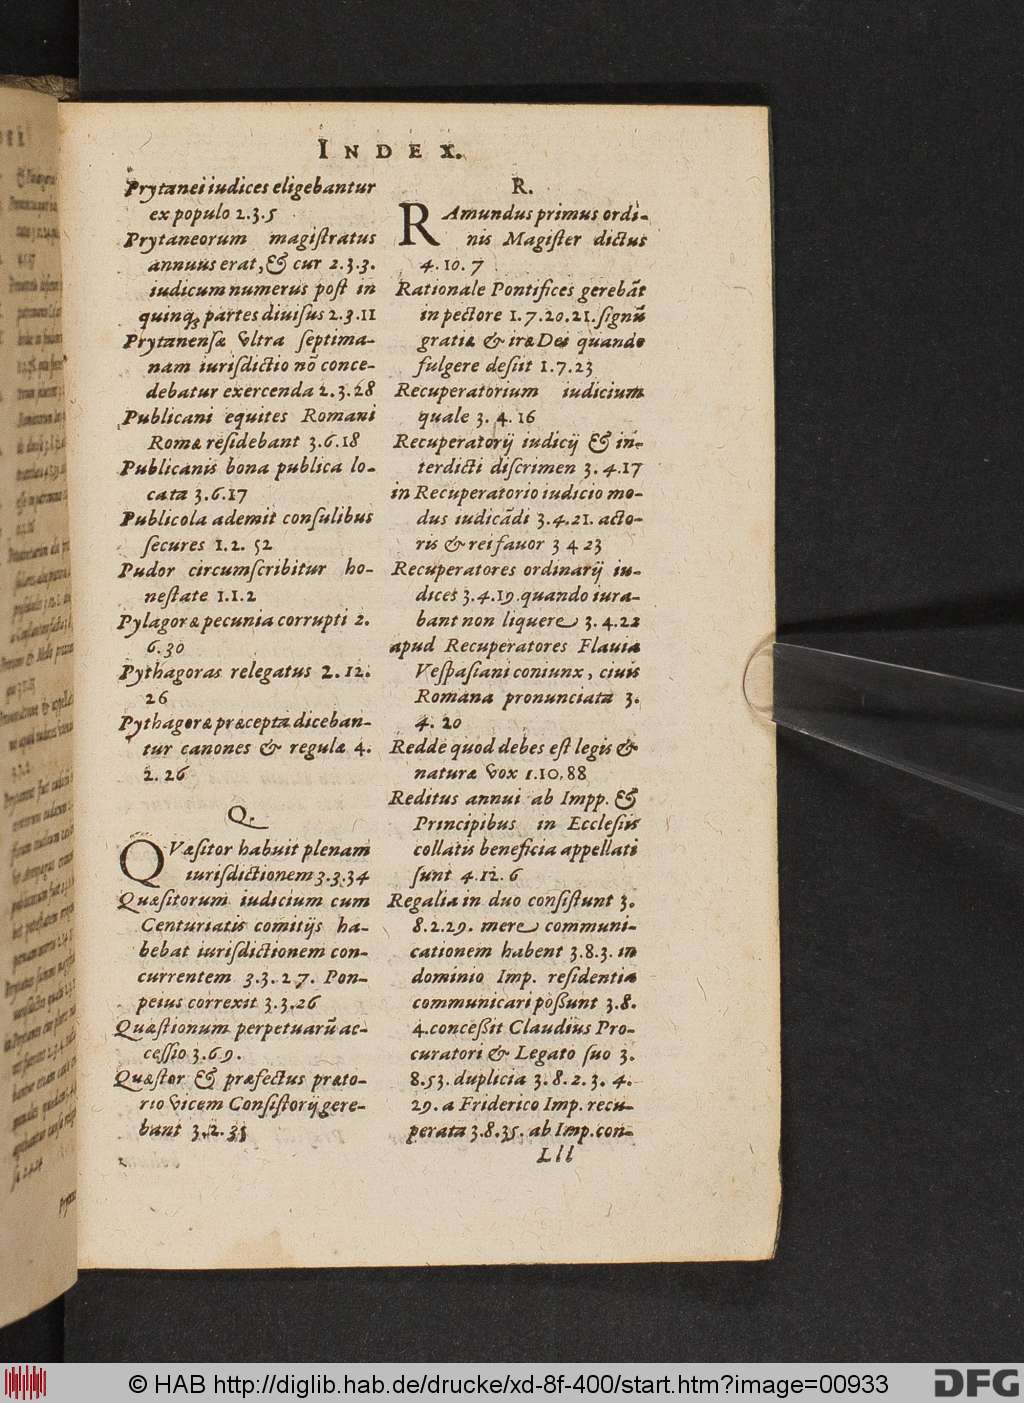 INDEX.
Prytanei iudices eligebantur
ex populo 2.3.5
Prytaneorum magiſtratus
annuus erat, & cur 2.3.3.
iudicum numerus poſt in
quinq; partes diuiſus 2.3.11
Prytanenſæ vltra ſeptima-
nam iurisdictio nõ conce-
debatur exercenda 2.3.28
Publicani equites Romani
Romæ reſidebant 3.6.18
Publicanis bona publica lo-
cata 3.6.17
Publicola ademit conſulibus
ſecures 1.2. 52
Pudor circumſcribitur ho-
neſtate 1.1.2
Pylagoræ pecunia corrupti 2.
6.30
Pythagoras relegatus 2.12.
26
Pythagoræ præcepta diceban-
tur canones & regulæ 4.
2.26
Q.
QVæſitor habuit plenam
iurisdictionem 3.3.34
Quæſitorum iudicium cum
Centuriatis comitijs ha-
bebat iurisdictionem con-
currentem 3.3.27. Pon-
peius correxit 3.3.26
Quæſtionum perpetuarũ ac-
ceſſio 3.69.
Quæſtor & præfectus præto-
rio vicem Conſiſtorij gere-
bant 3.2.35
R.
RAmundus primus ordi-
nis Magiſter dictus
4.10.7
Rationale Pontifices gerebãt
in pectore 1.7.20.21. ſignũ
gratiæ & iræ Dei quando
fulgere deſiit 1.7.23
Recuperatorium iudicium
quale 3.4.16
Recuperatorij iudicij & in-
terdicti diſcrimen 3.4.17
in Recuperatorio iudicio mo-
dus iudicãdi 3.4.21. acto-
ris & rei fauor 3 4 23
Recuperatores ordinarij iu-
dices 3.4.19. quando iura-
bant non liquere 3.4.22
apud Recuperatores Flauia
Veſpaſiani coniunx, ciuis
Romana pronunciata 3.
4.20
Redde quod debes eſt legis &
naturæ vox 1.10.88
Reditus annui ab Impp. &
Principibus in Eccleſiis
collatis beneficia appellati
ſunt 4.12.6
Regalia in duo conſiſtunt 3.
8.2.29. mere communi-
cationem habent 3.8.3. in
dominio Imp. reſidentia
communicari poßunt 3.8.
4. conceßit Claudius Pro-
curatori & Legato ſuo 3.
8.53. duplicia 3.8.2.3.4.
29. a Friderico Imp. recu-
perata 3.8.35. ab Imp. con-
Lll
© HAB http://diglib.hab.de/drucke/xd-8f-400/start.htm?image=00933
DFG